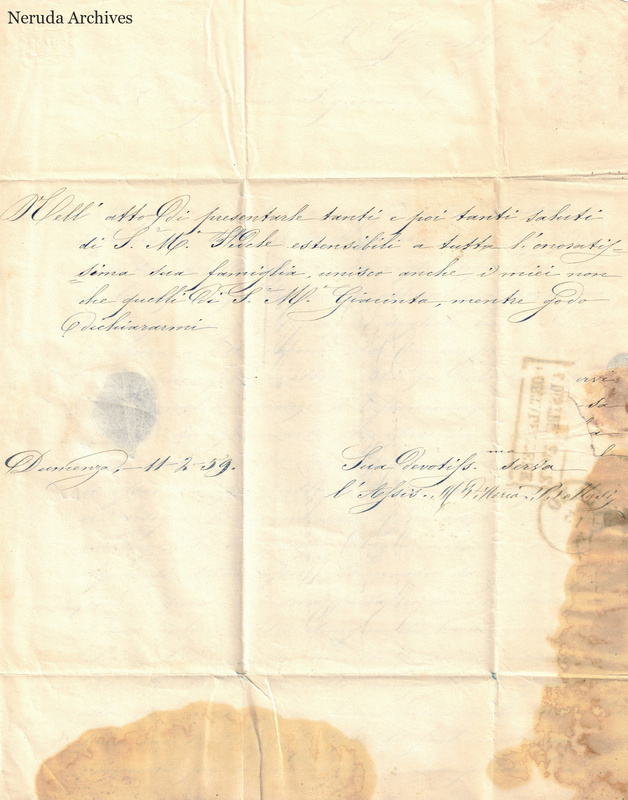 Neruda Archives
Nell' atto di presentarle tanti e poi tanti saluti
di S.r M.a Fidele estensibili a tutta l'onoratis-
-sima sua famiglia, unisco anche i miei non
che quelli di S.r M.a Giacinta, mentre godo
dichiararmi
Dumenza, - 11 - 2 - 59.
Sua devotiss.ma serva
l'Assis. M.